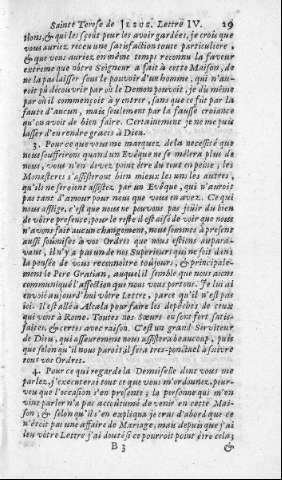 Sainte Terese de Jesus. Lettre IV. 29
tions, & qui les sçeut pour les avoir gardées, je crois que
vous auriez receu une satisfaction toute particuliere,
& que vous auriez en même temps reconnu la faveur
extrême que nôtre Seigneur a fait à cette Maison, de
ne la pas laisser sous le pouvoir d'un homme, qui n'au-
roit pû découvrir par où le Demon pouvoit, je dis même
par où il commençoit à y entrer, sans que ce fut par la
faute d'aucun, mais seulement par la fausse croiance
qu'on avoit de bien faire. Certainement je ne me puis
lasser d'en rendre graces à Dieu.
3. Pour ce que vous me marquez de la necessité que
nous souffrirons quand un Evêque ne se mêlera plus de
nous, vous n'en devez point être du tout en peine; les
Monasteres s'assisteront bien mieux les uns les autres,
qu'ils ne seroient assistez par un Evêque, qui n'auroit
pas tant d'amour pour nous que vous en avez. Ce qui
nous afflige, c'est que nous ne pouvons pas joüir du bien
de vôtre presence; pour le reste il est aisé de voir que nous
n'avons fait aucun changement, nous sommes à present
aussi soumises à vos Ordres que nous estions aupara-
vant, il n'y a pas un de nos Superieurs qui ne soit dans
la pensée de vous reconnoître toujours, & principale-
ment le Pere Gratian, auquel il semble que nous aions
communiqué l'affection que nous vous portons. Je lui ai
envoié aujourd'hui vôtre Lettre, parce qu'il n'est pas
ici. Il est à Alcala pour faire les depêches de ceux
qui vont à Rome. Toutes nos Sœurs en sont fort satis-
faites, & certes avec raison. C'est un grand Serviteur
de Dieu, qui assurement nous assistera beaucoup, puis
que selon qu'il nous paroît il sera tres-ponctuel à suivre
tous vos Ordres.
4. Pour ce qui regarde la Demoiselle dont vous me
parlez, j'executerai tout ce que vous m'ordonnez, pour-
veu que l'occasion s'en presente; la personne qui m'en
vint parler n'a pas accoûtumé de venir en cette Mai-
son; & selon qu'il s'en expliqua je crus d'abord que ce
n'étoit pas une affaire de Mariage, mais depuis que j'ai
leu vôtre Lettre j'ai douté si ce pourroit point être cela;
B 3 &